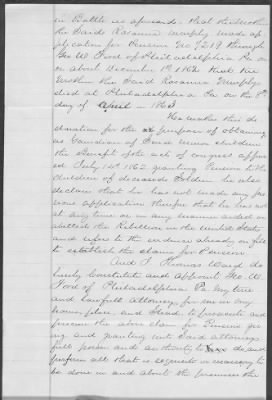 in Battle as aforesaid. that his Mother
the Said Rosanna Murphy made ap
plication for Pension No 7219 through
Geo W Ford of Philadelphia Pa on
or about December 1st 1862 that his
Mother the Said Rosanna Murphy
died at Philadelphia Pa on the 8th
day of April 1863
He makes this de
claration for the purpose of obtaining
as Guardian of Said Minor children
the benefit of the act of congress appro
ved July 14th 1862 granting Pensions to the
Children of deceased Soldiers he also
declares that he has not made any pre
vious application therefor that he has not
at any time or in any manner aided or
abetted the Rebellion in the United States
and refers to the evidence already on file
to establish the claim for Pension
And I Thomas Ward do
hereby Constitute and appoint Geo. W.
Ford of Philadelphia Pa my true
and lawfull attorney for me in my
name, place, and Stead to prosecute and
present the above claim for Pension giv
ing and granting unto Said attorney
full power and authority to do and
perform all that is requisite or necessary to
be done in and about the premises the